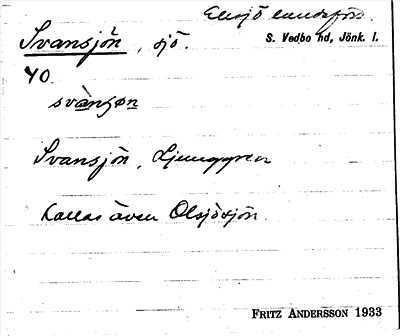 Eksjö landsförs.
Svansjön, sjö.
S. Vedbo hd, Jönk. l.
40.
svànsøn
Svansjön, Ljunggren
Kallas även Olsjösjön
FRITZ ANDERSSON 1933